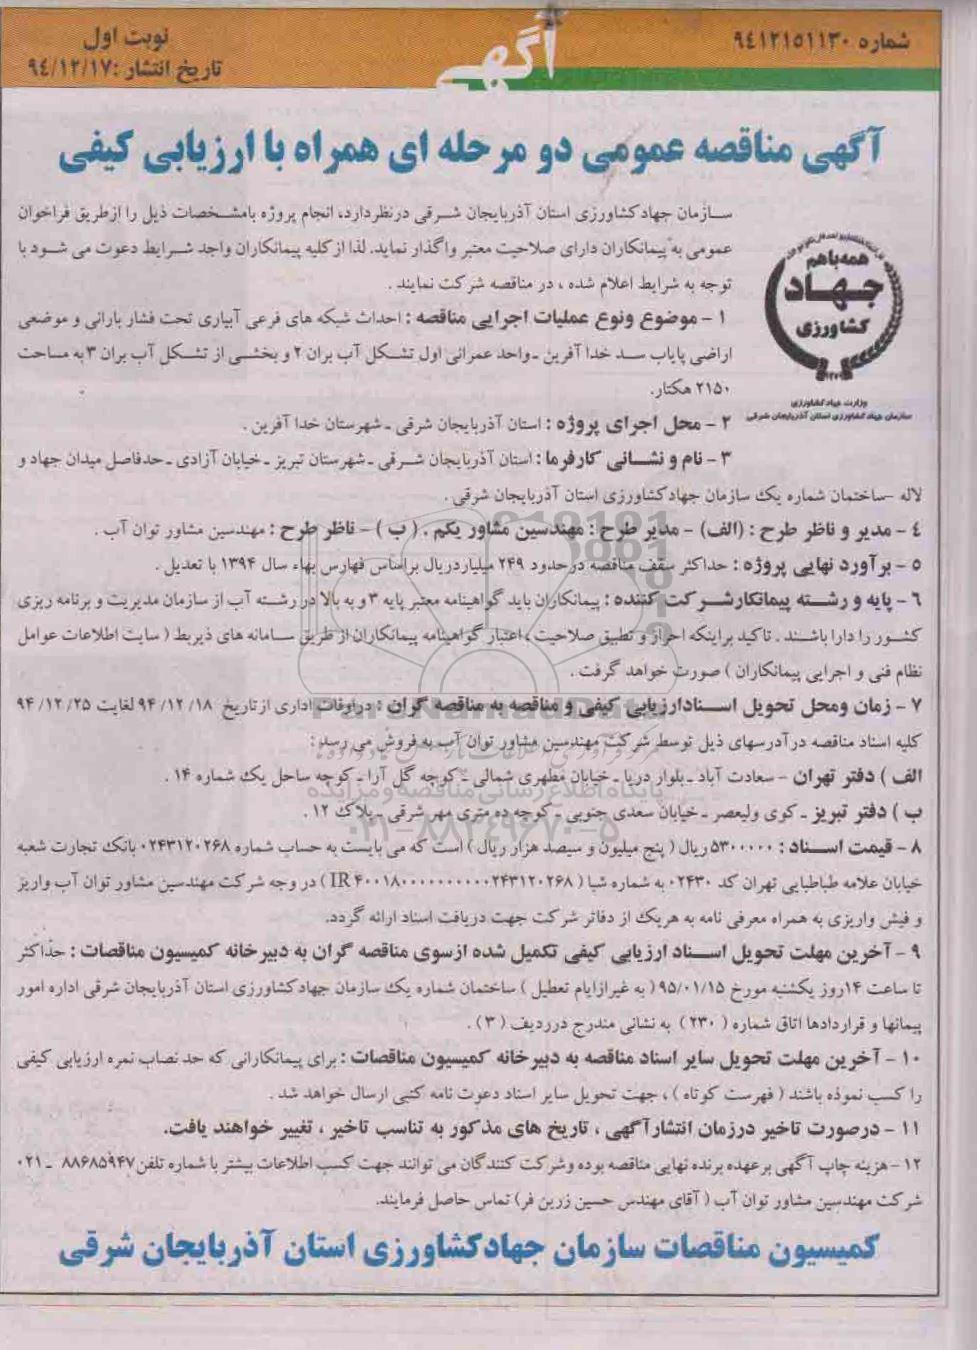 شماره ۹۴۱۲۱۵۱۱۳۰
آگهی
نوبت اول
تاریخ انتشار :۹۴/۱۲/۱۷
آگهی مناقصه عمومی دو مرحله ای همراه با ارزیابی کیفی
همه باهم
جهاد
کشاورزی
وزارت جهاد کشاورزی
سازمان جهاد کشاورزی استان آذربایجان شرقی
سازمان جهاد کشاورزی استان آذربایجان شرقی درنظردارد، انجام پروژه بامشخصات ذیل را ازطریق فراخوان
عمومی به پیمانکاران دارای صلاحیت معتبر واگذار نماید. لذا از کلیه پیمانکاران واجد شرایط دعوت می شود با
توجه به شرایط اعلام شده ، در مناقصه شرکت نمایند .
۱ - موضوع ونوع عملیات اجرایی مناقصه : احداث شبکه های فرعی آبیاری تحت فشار بارانی و موضعی
اراضی پایاب سد خدا آفرین -واحد عمرانی اول تشکل آب بران ۲ و بخشی از تشکل آب بران ۳ به مساحت
۲۱۵۰ هکتار.
۲ - محل اجرای پروژه : استان آذربایجان شرقی - شهرستان خدا آفرین .
۳ - نام و نشانی کارفرما : استان آذربایجان شرقی - شهرستان تبریز - خیابان آزادی - حدفاصل میدان جهاد و
لاله -ساختمان شماره یک سازمان جهاد کشاورزی استان آذربایجان شرقی .
۴ - مدیر و ناظر طرح : (الف) - مدیر طرح : مهندسین مشاور یکم . ( ب ) - ناظر طرح : مهندسین مشاور توان آب .
۵ - برآورد نهایی پروژه : حداکثر سقف مناقصه درحدود ۲۴۹ میلیارد ریال براساس فهارس بهاء سال ۱۳۹۴ با تعدیل .
۶ - پایه و رشته پیمانکارشرکت کننده : پیمانکاران باید گواهینامه معتبر پایه ۳ و به بالا در رشته آب از سازمان مدیریت و برنامه ریزی
کشور را دارا باشند . تاکید براینکه احراز و تطبیق صلاحیت ، اعتبار گواهینامه پیمانکاران از طریق سامانه های ذیربط ( سایت اطلاعات عوامل
نظام فنی و اجرایی پیمانکاران ) صورت خواهد گرفت .
۷ - زمان ومحل تحویل اسنادارزیابی کیفی و مناقصه به مناقصه گران : دراوقات اداری از تاریخ ۹۴/۱۲/۱۸ لغایت ۹۴/۱۲/۲۵
کلیه اسناد مناقصه در آدرسهای ذیل توسط شرکت مهندسین مشاور توان آب به فروش می رسد :
الف ) دفتر تهران - سعادت آباد - بلوار دریا - خیابان مطهری شمالی - کوچه گل آرا - کوچه ساحل یک شماره ۱۴ .
ب ) دفتر تبریز - کوی ولیعصر - خیابان سعدی جنوبی - کوچه ده متری مهر شرقی - پلاک ۱۲ .
۸ - قیمت اسناد : ۵۳۰۰۰۰۰ ریال ( پنج میلیون و سیصد هزار ریال ) است که می بایست به حساب شماره ۰۲۴۳۱۲۰۲۶۸ بانک تجارت شعبه
خیابان علامه طباطبایی تهران کد ۰۲۴۳۰ به شماره شبا ( IR ۴۰۰۱۸۰۰۰۰۰۰۰۰۰۰۰۲۴۳۱۲۰۲۶۸ ) در وجه شرکت مهندسین مشاور توان آب واریز
و فیش واریزی به همراه معرفی نامه به هریک از دفاتر شرکت جهت دریافت اسناد ارائه گردد.
۹ - آخرین مهلت تحویل اسناد ارزیابی کیفی تکمیل شده ازسوی مناقصه گران به دبیرخانه کمیسیون مناقصات : حداکثر
تا ساعت ۱۴ روز یکشنبه مورخ ۹۵/۰۱/۱۵ ( به غیرازایام تعطیل ) ساختمان شماره یک سازمان جهاد کشاورزی استان آذربایجان شرقی اداره امور
پیمانها و قراردادها اتاق شماره ( ۲۳۰ ) به نشانی مندرج درردیف ( ۳ ) .
۱۰ - آخرین مهلت تحویل سایر اسناد مناقصه به دبیرخانه کمیسیون مناقصات : برای پیمانکارانی که حد نصاب نمره ارزیابی کیفی
را کسب نموده باشند ( فهرست کوتاه ) ، جهت تحویل سایر اسناد دعوت نامه کتبی ارسال خواهد شد .
۱۱ - درصورت تاخیر درزمان انتشارآگهی ، تاریخ های مذکور به تناسب تاخیر ، تغییر خواهند یافت.
۱۲ - هزینه چاپ آگهی برعهده برنده نهایی مناقصه بوده وشرکت کنندگان می توانند جهت کسب اطلاعات بیشتر با شماره تلفن ۸۸۶۸۵۹۴۷ - ۰۲۱
شرکت مهندسین مشاور توان آب ( آقای مهندس حسین زرین فر) تماس حاصل فرمایند.
کمیسیون مناقصات سازمان جهاد کشاورزی استان آذربایجان شرقی
ParsNamadData
پایگاه اطلاع رسانی مناقصه و مزایده
۰۲۱-۸۸۳۴۹۶۷۰-۵